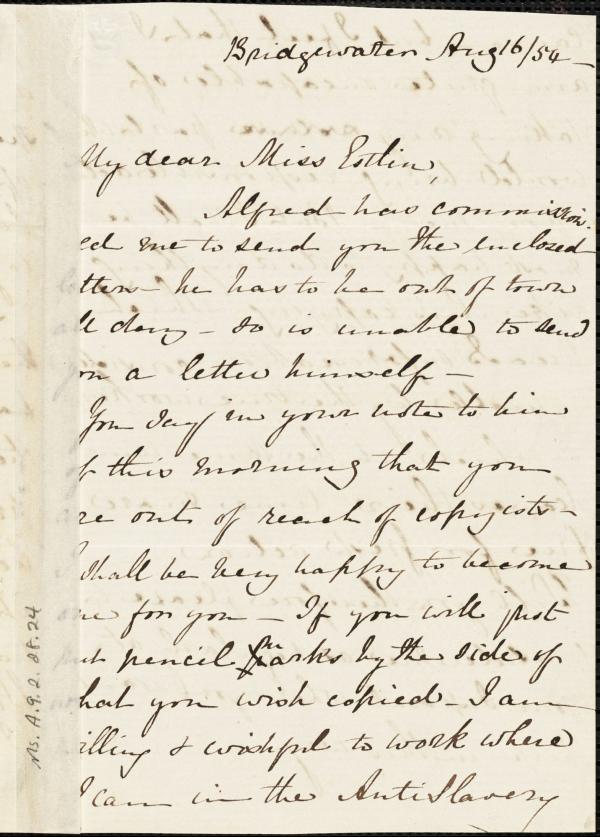 Bridgewater Aug 16/54 –
My dear Miss Estlin,
Alfred has commission-
ed me to send you the enclosed
tter – he has to be out of town
ll day – so is unable to send
on a letter himself –
You say in your note to him
f this morning that you
re out of reach of copyists –
I shall be very happy to become
ne for you – If you will just
ut pencil marks by the side of
hat you wish copied – I am
illing & wishful to work where
I can in the AntiSlavery
Ms. A.9.2.28.24